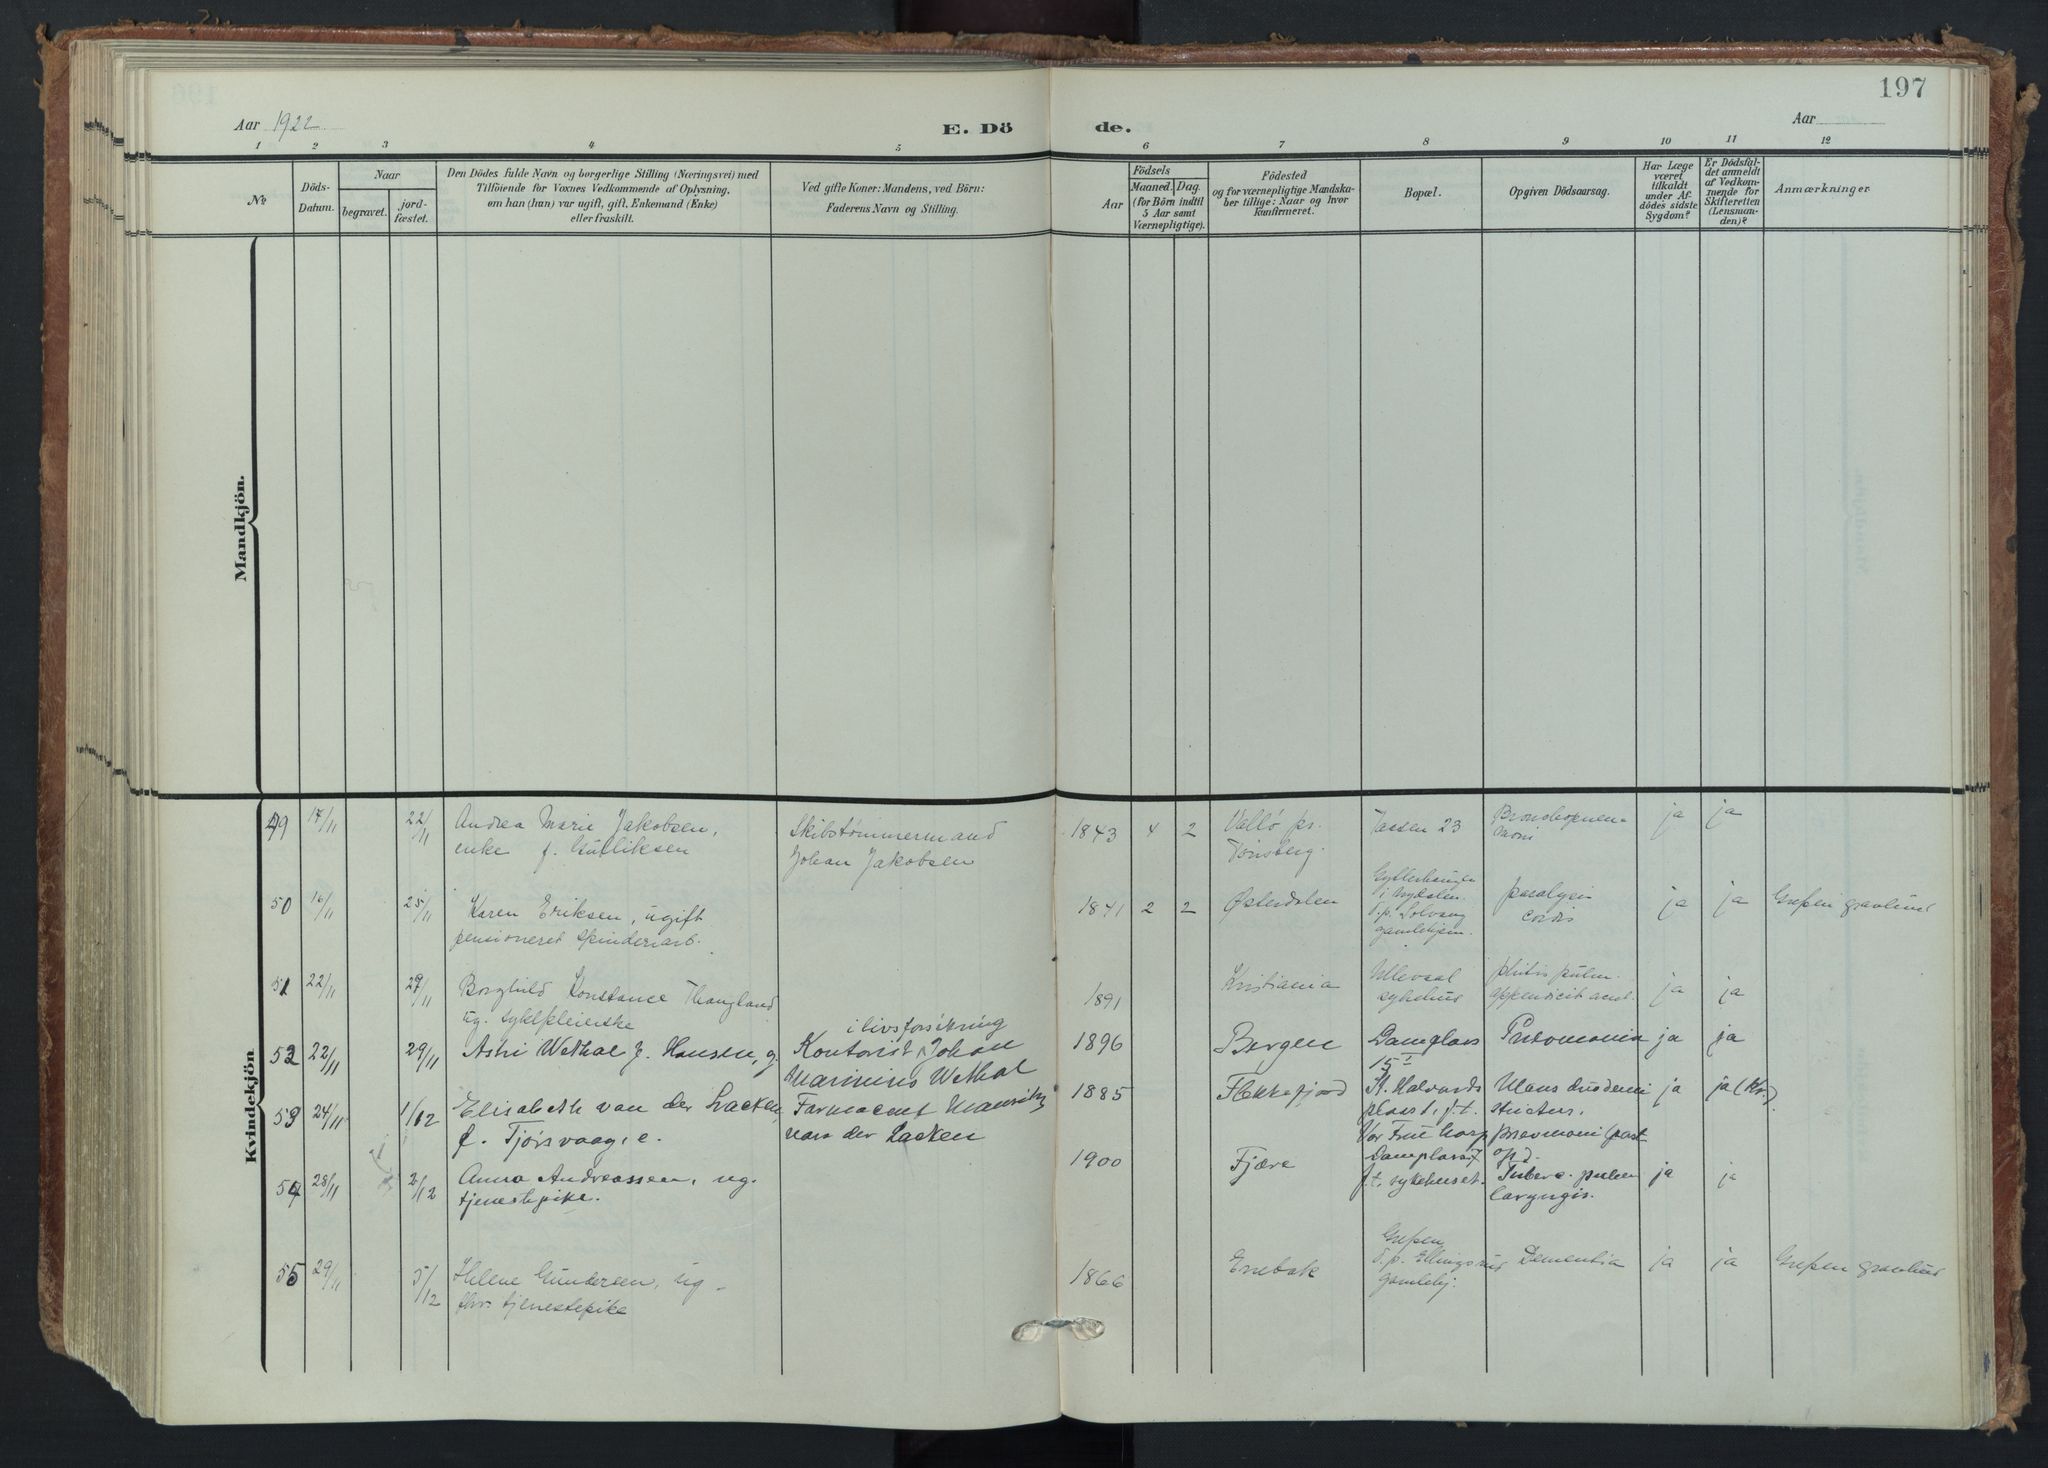 197
Aar 1922
E. Dö
de.
Aar
1 2 3 4 5 6 7 8 9 10 11 12
№
Döds-
Datum.
Naar
begravet.
jord-
fæstet.
Den Dödes fulde Navn og borgerlige Stilling (Næringsvei) med
Tilföiende for Voxnes Vedkommende af Oplysning,
om han (hun) var ugift, gift, Enkemand (Enke)
eller fraskilt.
Ved gifte Koner: Mandens, ved Börn:
Faderens Navn og Stilling.
Födsels
Aar
Maaned. Dag.
(for Börn indtil
5 Aar samt
Værnepligtige).
Födested
og for værnepligtige Mandska-
ber tillige: Naar og hvor
kunfirmeret.
Bopæl.
Opgiven Dödsaarsag.
Har Læge
været
tilkaldt
under Af-
dödes sidste
Sygdom?
Er Dödsfal-
det anmeldt
af Vedkom-
mende for
Skifteretten
(Lensman-
den)?
Anmærkninger
Mandkjön.
Kvindekjön
49 17/11 22/11 Andrea Marie Jakobsen, Skibstømmermand 1843 4 2 Vallø pr. Taasen 23 Bronchopneu- ja ja
enke f. Gulliksen Johan Jakobsen Tønsberg. moni
50 16/11 25/11 Karen Eriksen, ugift 1841 2 2 Østerdalen i Nydalen paralysis ja ja Grefsen gravlund
pensioneret spinderiarb. d.p. Solvang cordis
gamlehjem.
51 22/11 27/11 Borghild Konstance Thaugland 1891 Kristiania Ullevaal phtis. pulm. ja ja
ug. sykepleierske sykehus appendicit acut.
i livsforsikring
52 22/11 29/11 Astri Wethal f. Hansen, g. Kontorist Johan 1896 Bergen Damplass Pneumonia ja ja
Marinius Wethal 15 I
53 24/11 1/12 Elisabeth van der Lacken, Farmaceut 1885 Flekkefjord St. Halvards Ulcus duodeni ja ja (Kr.)
f. Tjørsvaag, e. van der Lacken plass 1, f.t. strictur.
Vor Frue hosp. pneumoni (post
op.)
54 28/11 2/12 Anna Andreassen, ug. 1900 Fjære Damplass 7 Tuberc. pulm ja ja
tjenestepike. f.t. sykehuset. laryngis.
55 29/11 5/12 Helene Gundersen, ug. 1866 Enebak Grefsen Dementia ja ja Grefsen gravlund
fhv. tjenestepike d.p. Ellingsrud
gamlehj.